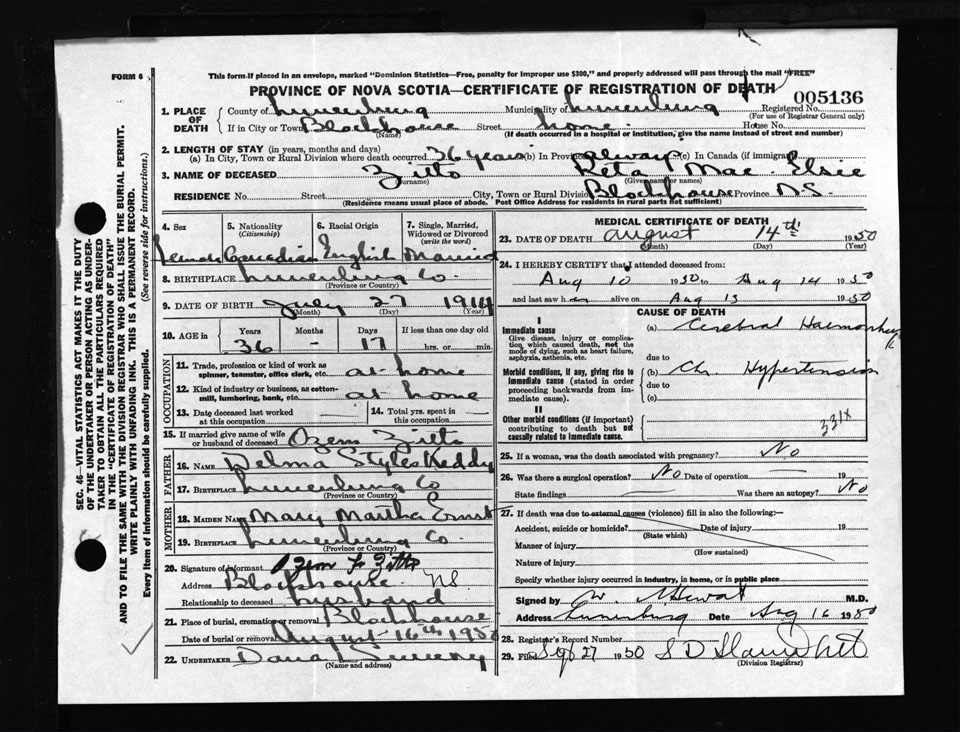 FORM 6
This form if placed in an envelope, marked "Dominion Statistics—Free, penalty for improper use $300," and properly addressed will pass through the mail "FREE"
PROVINCE OF NOVA SCOTIA—CERTIFICATE OF REGISTRATION OF DEATH
005136
1. PLACE OF DEATH
County of Lunenburg Municipality of Lunenburg Registered No.
(For use of Registrar General only)
If in City or Town Blockhouse Street home House No.
(Name) (If death occurred in a hospital or institution, give the name instead of street and number)
2. LENGTH OF STAY (in years, months and days)
(a) In City, Town or Rural Division where death occurred 36 years (b) In Province always (c) In Canada (if immigrant)
3. NAME OF DECEASED Zitto Reta Mae Elsie
(Surname) (Given name or names)
RESIDENCE No. Street City, Town or Rural Division Blockhouse Province N.S.
(Residence means usual place of abode. Post Office Address for residents in rural parts not sufficient)
4. Sex 5. Nationality (Citizenship) 6. Racial Origin 7. Single, Married, Widowed or Divorced (write the word)
Female Canadian English Married
8. BIRTHPLACE Lunenburg Co.
(Province or Country)
9. DATE OF BIRTH July 27 1914
(Month) (Day) (Year)
10. AGE in Years Months Days If less than one day old
36 - 17 hrs. or min.
OCCUPATION
11. Trade, profession or kind of work as spinner, teamster, office clerk, etc. at home
12. Kind of industry or business, as cotton-mill, lumbering, bank, etc. at home
13. Date deceased last worked at this occupation 14. Total yrs. spent in this occupation
15. If married give name of wife or husband of deceased Ozem Zitto
FATHER
16. NAME Delma Styles Keddy
17. BIRTHPLACE Lunenburg Co
(Province or Country)
MOTHER
18. MAIDEN NAME Mary Martha Ernst
19. BIRTHPLACE Lunenburg Co.
(Province or Country)
20. Signature of informant
Address Blockhouse NS
Relationship to deceased husband
21. Place of burial, cremation or removal Blockhouse
Date of burial or removal August 16th 1950
22. UNDERTAKER Dana L Sweeny
(Name and address)
MEDICAL CERTIFICATE OF DEATH
23. DATE OF DEATH August 14th 1950
(Month) (Day) (Year)
24. I HEREBY CERTIFY that I attended deceased from:
Aug 10 1950 to Aug 14 1950
and last saw her alive on Aug 13 1950
CAUSE OF DEATH
I
Immediate cause
Give disease, injury or complication, which caused death, not the mode of dying, such as heart failure, asphyxia, asthenia, etc.
(a) Cerebral Haemorrhage
due to
Morbid conditions, if any, giving rise to immediate cause (stated in order proceeding backwards from immediate cause).
(b) Ch. Hypertension
due to
(c)
II
Other morbid conditions (if important) contributing to death but not causally related to immediate cause.
331X
25. If a woman, was the death associated with pregnancy? No
26. Was there a surgical operation? No Date of operation 19
State findings Was there an autopsy? No
27. If death was due to external causes (violence) fill in also the following:—
Accident, suicide or homicide? Date of injury 19
(State which)
Manner of injury
(How sustained)
Nature of injury
Specify whether injury occurred in industry, in home, or in public place
Signed by M.D.
Address Lunenburg Date Aug 16 1950
28. Registrar's Record Number
29. Filed Sept 27 1950
(Division Registrar)
SEC. 46—VITAL STATISTICS ACT MAKES IT THE DUTY
OF THE UNDERTAKER OR PERSON ACTING AS UNDER-
TAKER TO OBTAIN ALL THE PARTICULARS REQUIRED
IN THE "CERTIFICATE OF REGISTRATION OF DEATH"
AND TO FILE THE SAME WITH THE DIVISION REGISTRAR WHO SHALL ISSUE THE BURIAL PERMIT.
WRITE PLAINLY WITH UNFADING INK. THIS IS A PERMANENT RECORD.
Every item of information should be carefully supplied. (See reverse side for instructions.)